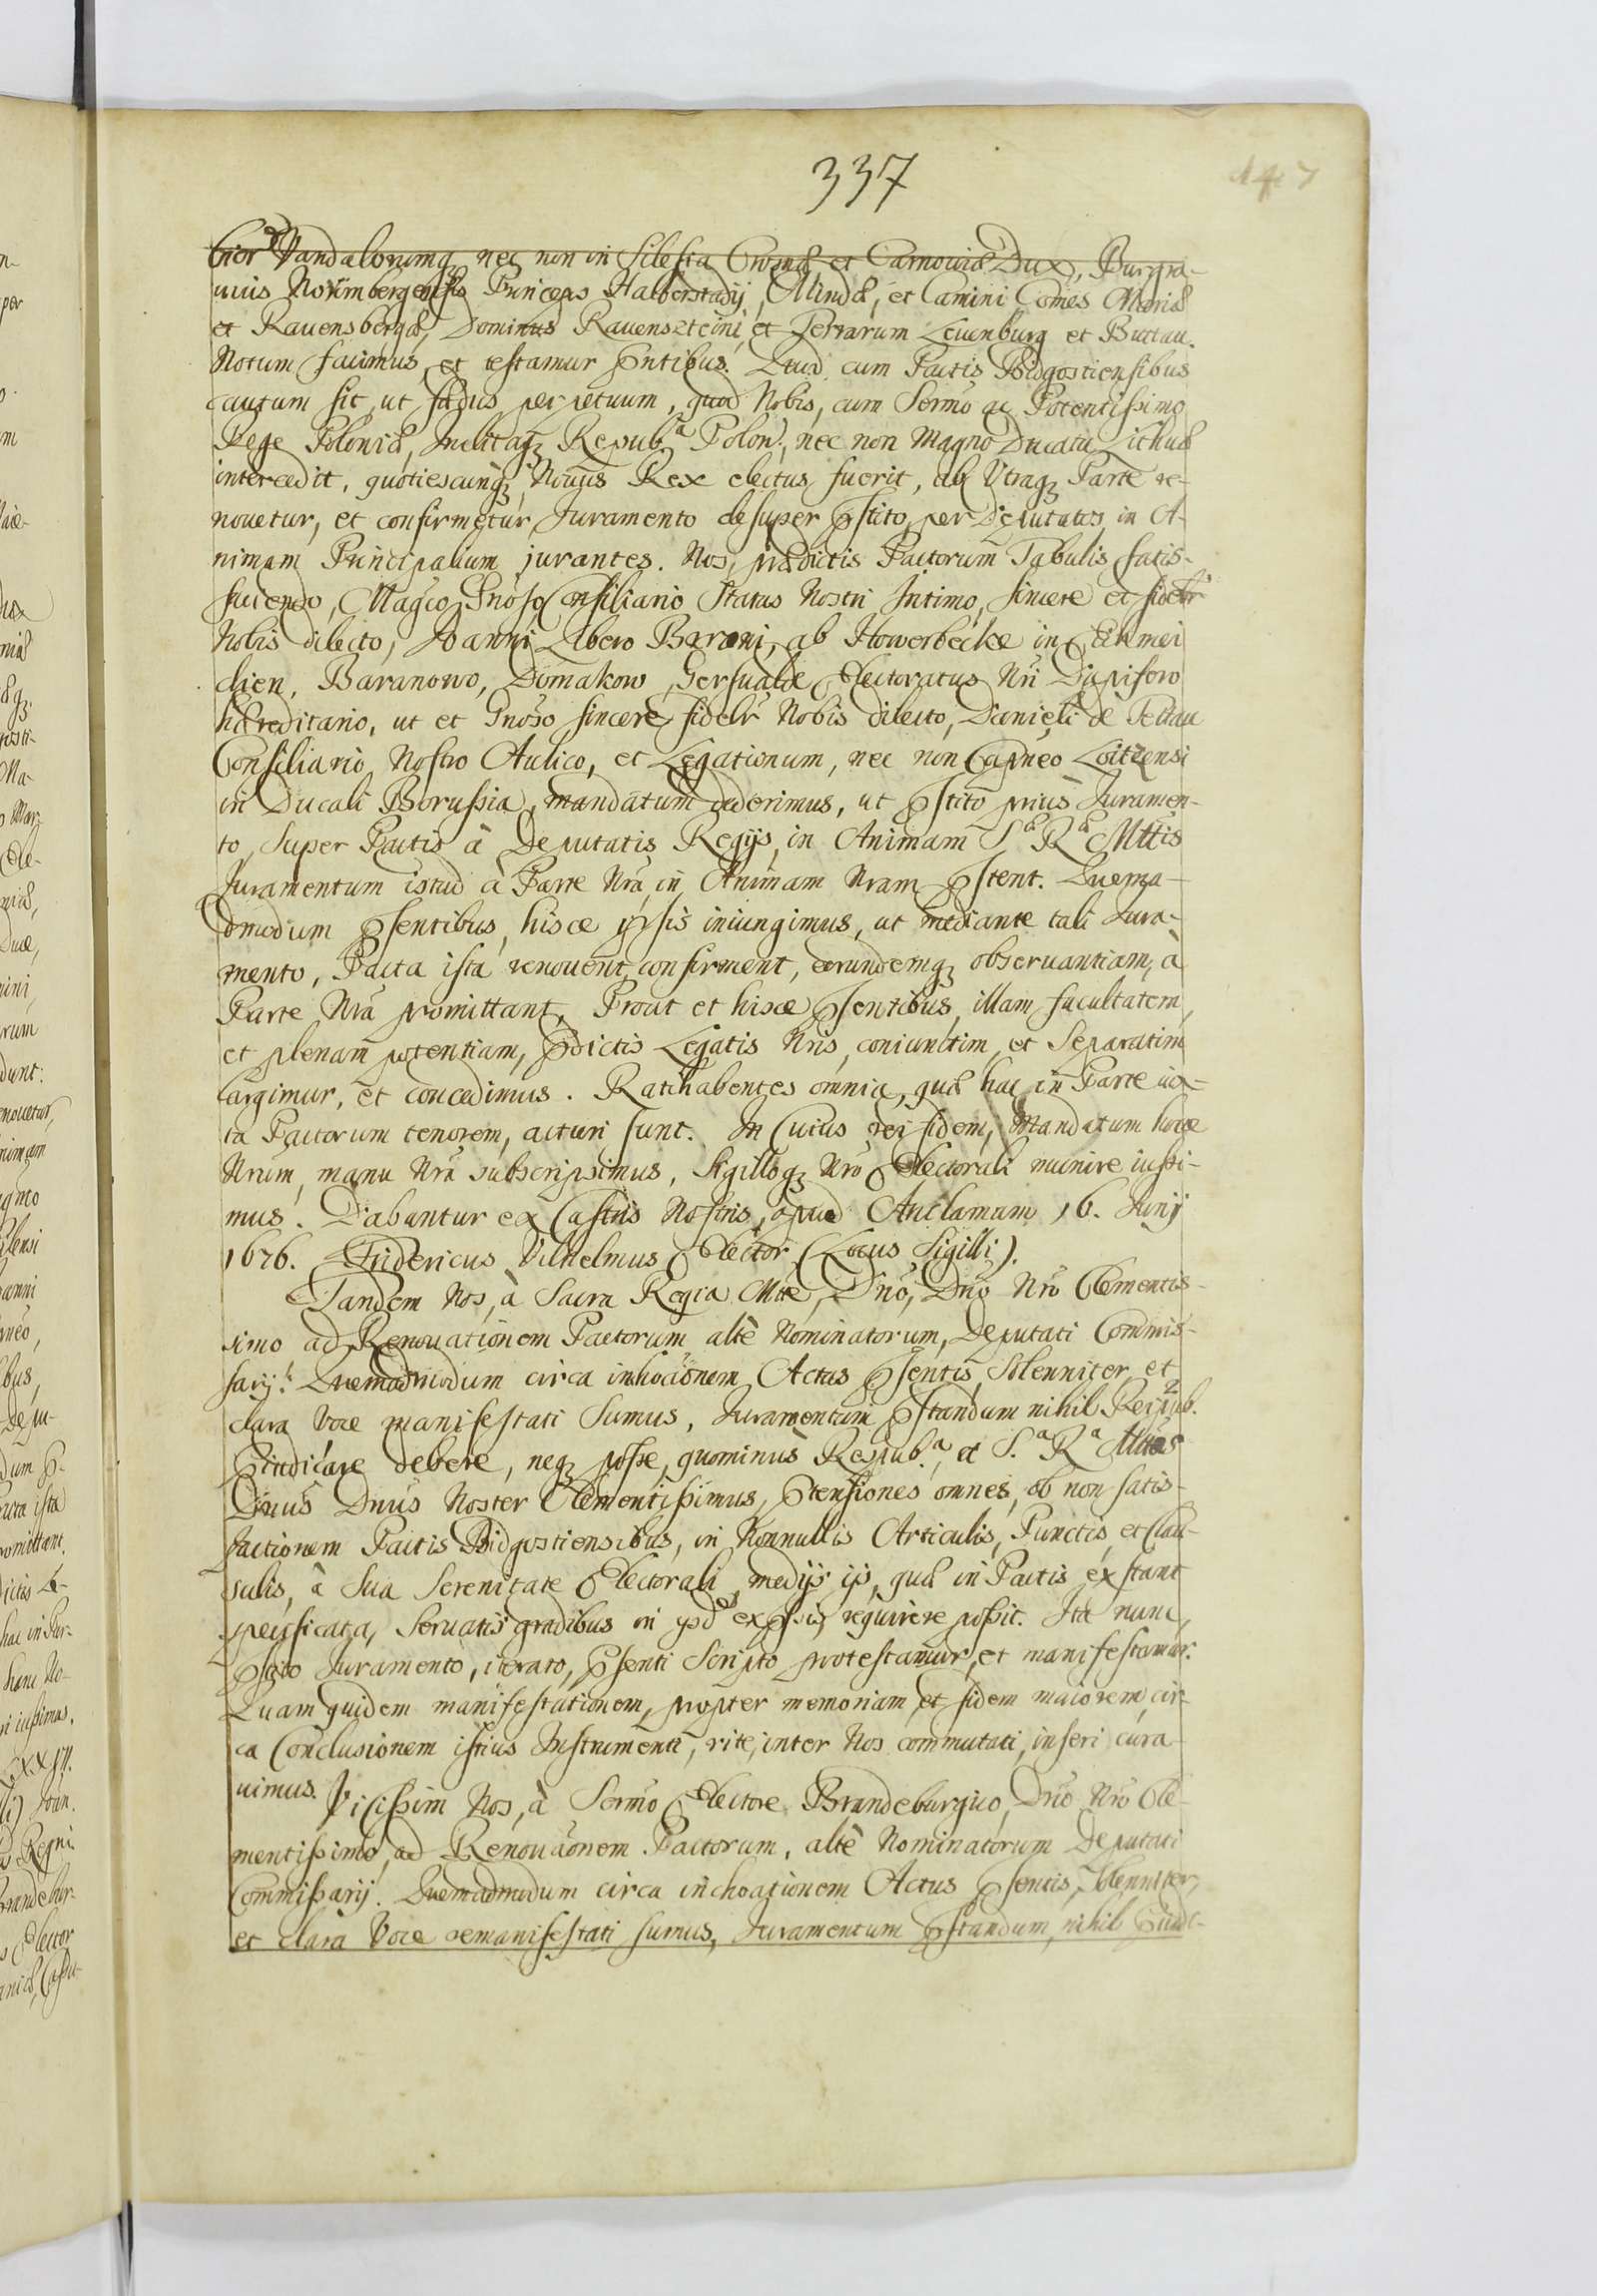 337
bior Vandalorumq nec non in Silesia Crosnæ et Carnoviæ Dux, Burgra-
uius Norimbergensis Princeps Halberstadij, Mindæ, et Camini Comes Marciæ
et Rauensbergæ, Dominus Rauenszteini, et Terrarum Leuenburg et Buttau.
Notum facimus, et testamur Pntibus. Quod cum Pactis Bidgostiensibus
cautum sit, ut fædus perpetuum, quod Nobis, cum Sermo ac Potentissimo
Rege Poloniæ, Inclitaq Repub.ᵃ Polon:, nec non Magno Ducatu Lithuæ
intercedit, quotiescunq Nouus Rex electus fuerit, ab Utraq Parte re-
nouetur, et confirmetur, Juramento desuper Pstito, per Deputatos in A-
nimam Principalium jurantes. Nos, prædictis Pactorum Tabulis satis-
faciendo, Magco Gnoso Consiliario Status Nostri Intimo, sincere et fidelr
Nobis dilecto, Joanni Libero Baroni, ab Howerbecke in Eikmei
dien, Baranowo, Domakow, Gersualde Electoratus Nri Dapifero
hæreditario, ut et Gnoso sincere fidelr Nobis dilecto, Danieli de Tettau
Consiliario Nostro Aulico, et Legationum, nec non Capneo Loitzensi
in Ducali Borussia, mandatum dederimus, ut Pstito prius Juramen-
to, super Pactis à Deputatis Regijs, in Animam S.æ R.æ Mttis
Juramentum istud à Parte Nra, in Animam Nram Pstent. Quema-
dmodum Psentibus, hisce ipsis iniungimus, ut mediante tali Jura-
mento, Pacta ista renouent, confirment, eorundemq obseruantiam, à
Parte Nra promittant, Prout et hisce Psentibus, illam facultatem,
et plenam potentiam, Pdictis Legatis Nris, coniunctim, et Separatim
largimur, et concedimus. Ratihabentes omnia, quæ hac in Parte iux-
ta Pactorum tenorem, acturi sunt. In Cuius rei fidem, Mandatum hocce
Nrum, manu Nra subscripsimus, Sigilloq Nro Electorali munire iussi-
mus. Dabantur ex Castris Nostris, apud Anclamum 16. Junij
1676. Fridericus Vilhelmus Elector (Locus Sigilli).
Tandem Nos, à Sacra Regia Mtte, Dno, Dno Nro Clementis-
simo ad Renouationem Pactorum altè Nominatorum, Deputati Commis-
sarij. Quemadmodum circa inhoaonem Actus Psentis, Solenniter, et
clara Voce manifestati Sumus, Juramentum Pstandum nihil Reipub.
Piudicare debere, neq posse, quominus Respub.ᵃ, et S.ᵃ R.ᵃ Mttas
Dnus Dnus Noster Clementissimus, Ptensiones omnes, ob non satis-
factionem Pactis Bidgostiensibus, in Nonnullis Articulis, Punctis, et Clau-
sulis, à Sua Serenitate Electorali, medijs ijs, quæ in Pactis exstant
specificata, Seruatis gradibus in ysdem expssis, requirere possit. Ita nunc,
Pstito Juramento, iterato, Psenti Scripto protestamur, et manifestamur.
Quam quidem manifestationem, propter memoriam et fidem maiorem, cir-
ca Conclusionem istius Instrumenti, rite, inter Nos commutati, inseri cura-
uimus. Vicissim Nos, à Sermo Electore Brandeburgico, Dno Nro Cle-
mentissimo, ad Renouaonem Pactorum, altè Nominatorum Deputati
Commissarij. Quemadmodum circa inchoationem Actus Psentis, Solenniter,
et clara Voce remanifestati sumus, Juramentum Pstandum, nihil Piudi-